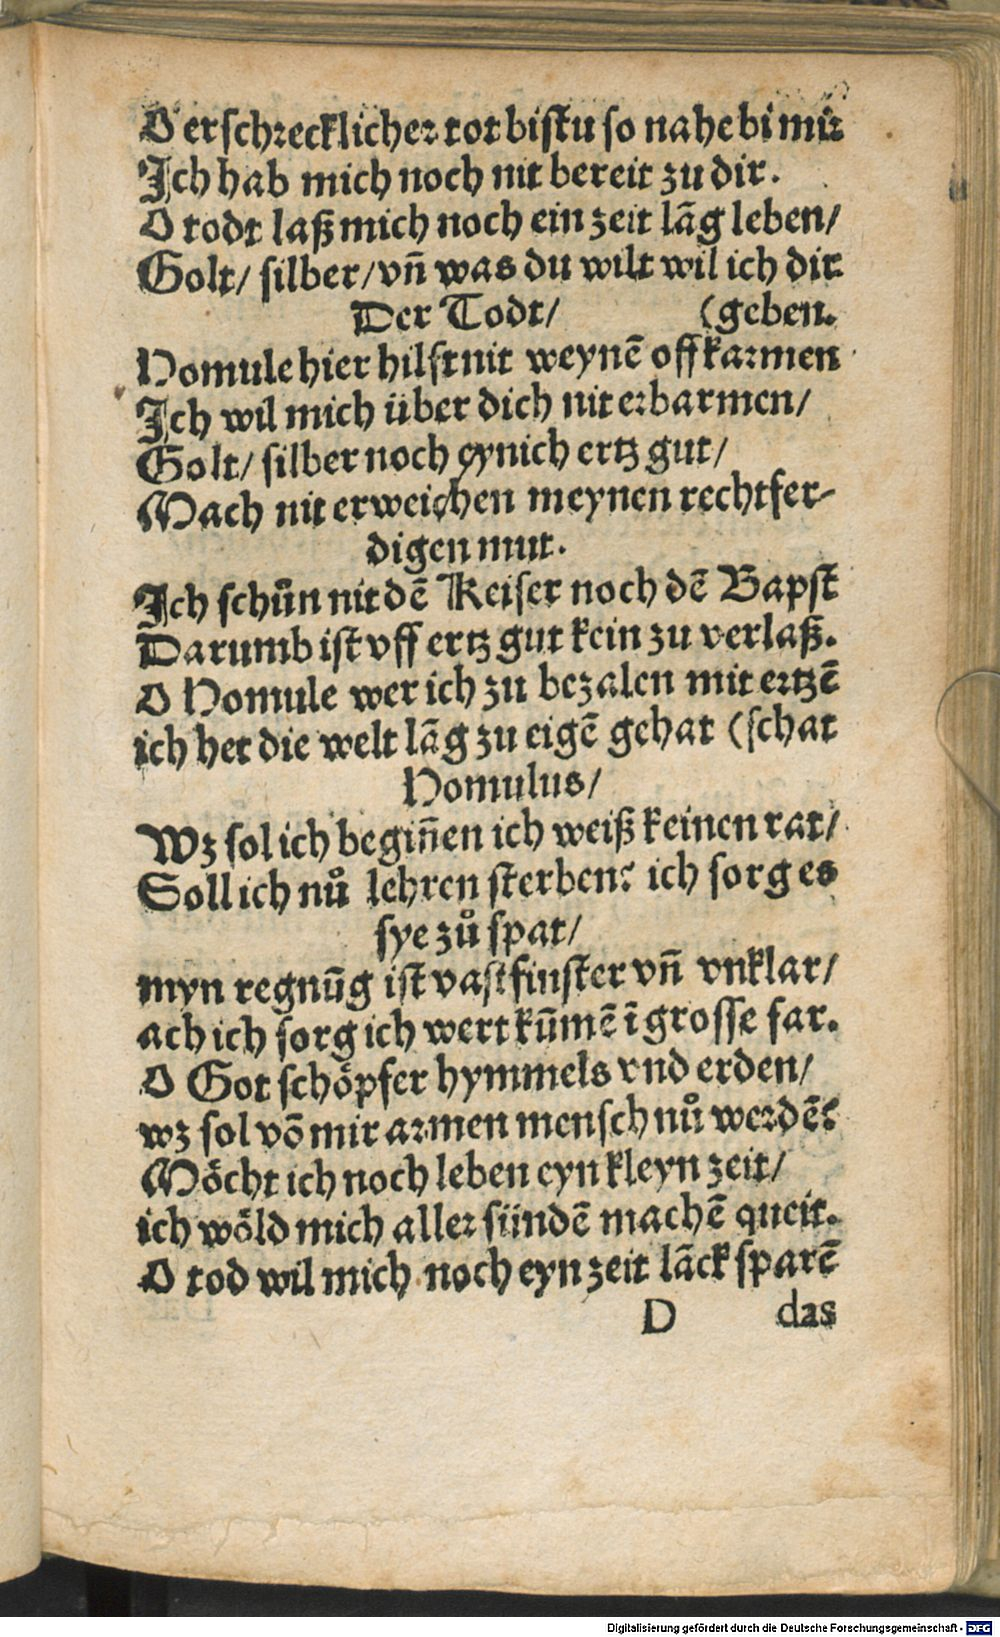 O erschrecklicher tot bistu so nahe bi mir
Ich hab mich noch nit bereit zu dir.
O todt laß mich noch ein zeit lāg leben/
Golt/ silber/ vn̄ was du wilt wil ich dir
Der Todt/ (geben.
Homule hier hilft nit weynē off karmen
Ich wil mich über dich nit erbarmen/
Golt/ silber noch eynich ertz gut/
Mach nit erweichen meynen rechtfer-
digen mut.
Ich schůn nit dē Keiser noch dē Bapst
Darumb ist vff ertz gut kein zu verlaß.
O Homule wer ich zu bezalen mit ertzē
ich het die welt lāg zu eigē gehat (schat
Homulus/
Wz sol ich begin̄en ich weiß keinen rat/
Soll ich nů lehren sterben? ich sorg es
sye zů spat/
myn regnūg ist vast finster vn̄ vnklar/
ach ich sorg ich wert kūmē ī grosse far.
O Got schöpfer hymmels vnd erden/
wz sol vō mir armen mensch nů werdē?
Möcht ich noch leben eyn kleyn zeit/
ich wöld mich aller sündē machē queit.
O tod wil mich noch eyn zeit lāck sparē
D das
Digitalisierung gefördert durch die Deutsche Forschungsgemeinschaft - DFG